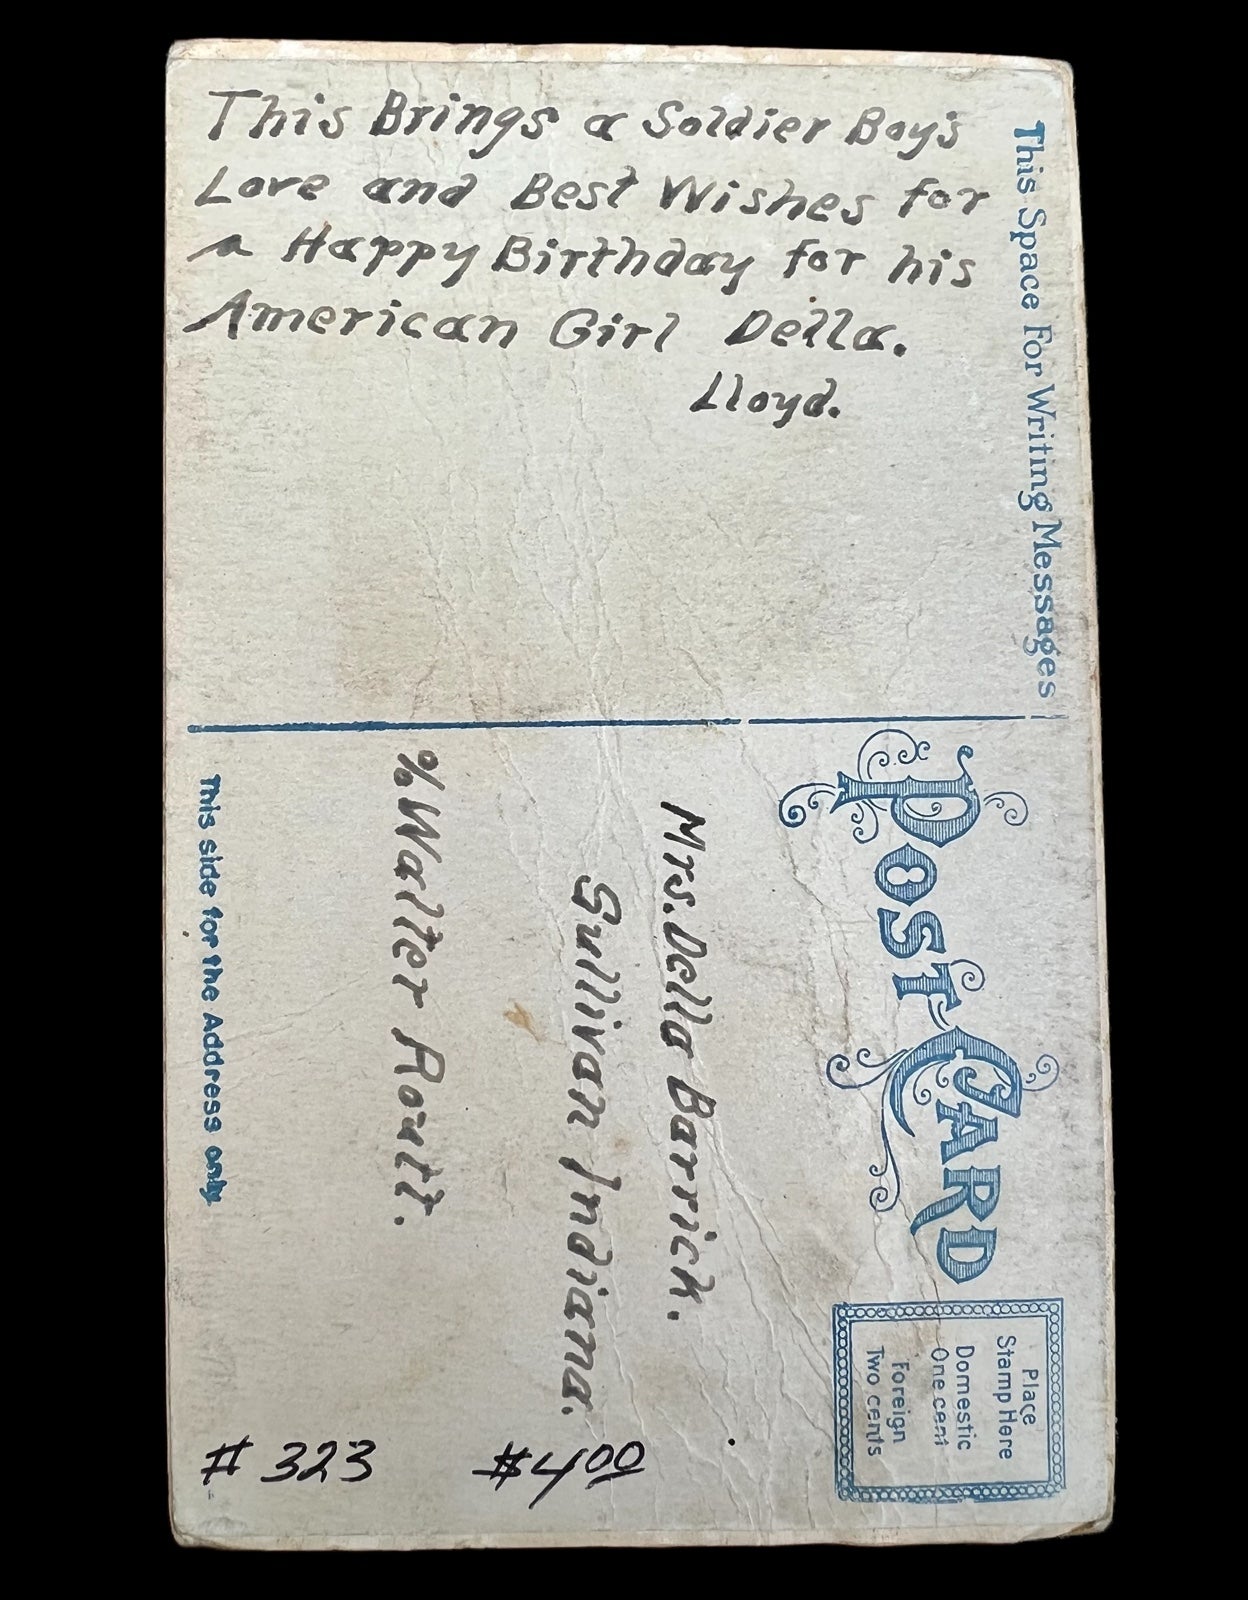 This Brings a Soldier Boy's
Love and Best Wishes for
a Happy Birthday for his
American Girl Della.
Lloyd.
This Space For Writing Messages
Post Card
Place
Stamp Here
Domestic
One cent
Foreign
Two cents
Mrs. Della Barrick.
Sullivan Indiana.
% Walter Routt.
This side for the Address only.
# 323
$4.00